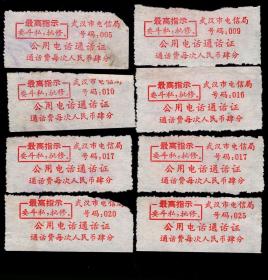 最高指示
要斗私,批修。
武汉市电信局
号码:005
公用电话通话证
通话费每次人民币肆分
最高指示
要斗私,批修。
武汉市电信局
号码:009
公用电话通话证
通话费每次人民币肆分
最高指示
要斗私,批修。
武汉市电信局
号码:010
公用电话通话证
通话费每次人民币肆分
最高指示
要斗私,批修。
武汉市电信局
号码:016
公用电话通话证
通话费每次人民币肆分
最高指示
要斗私,批修。
武汉市电信局
号码:017
公用电话通话证
通话费每次人民币肆分
最高指示
要斗私,批修。
武汉市电信局
号码:017
公用电话通话证
通话费每次人民币肆分
最高指示
要斗私,批修。
武汉市电信局
号码:020
公用电话通话证
通话费每次人民币肆分
最高指示
要斗私,批修。
武汉市电信局
号码:025
公用电话通话证
通话费每次人民币肆分